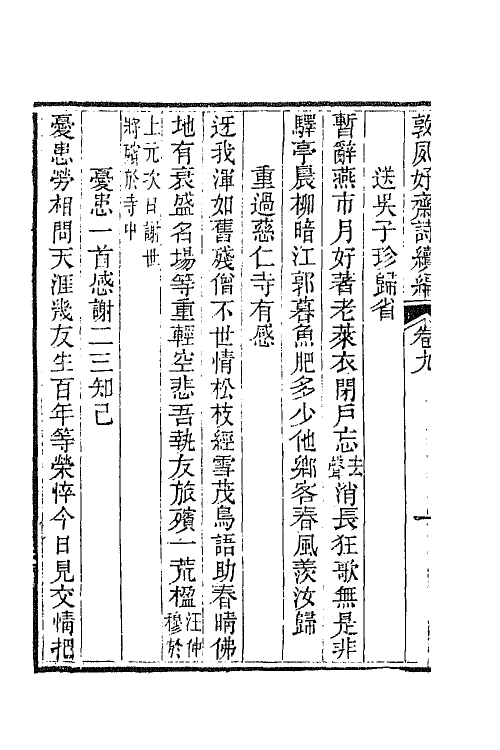 敦夙好齋詩續編 卷九 一
送吳子珍歸省
暫辭燕市月好著老萊衣閉戶忘去聲消長狂歌無是非
驛亭晨柳暗江郭暮魚肥多少他鄉客春風羨汝歸
重過慈仁寺有感
迓我渾如舊殘僧不世情松枝經雪茂鳥語助春晴佛
地有衰盛名場等重輕空悲吾執友旅殯一荒楹汪仲穆於
上元次日謝世將殯於寺中
憂患一首感謝二三知己
憂患勞相問天涯幾友生百年等榮悴今日見交情把